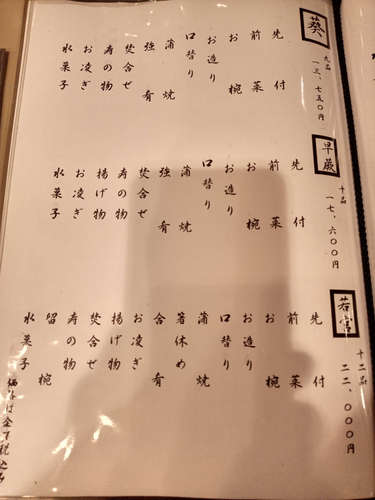 葵
九品
一三、七五〇円
先付
前菜
お椀
お造り
口替り
蒲焼
強肴
焚合せ
寿の物
お凌ぎ
水菓子
早蕨
十品
一七、六〇〇円
先付
前菜
お椀
お造り
口替り
蒲焼
強肴
焚合せ
寿の物
揚げ物
お凌ぎ
水菓子
十二品
二二、〇〇〇円
先付
前菜
お椀
お造り
口替り
蒲焼
箸休め
合肴
お凌ぎ
揚げ物
焚合せ
寿の物
留椀
水菓子
価格は全て税込み